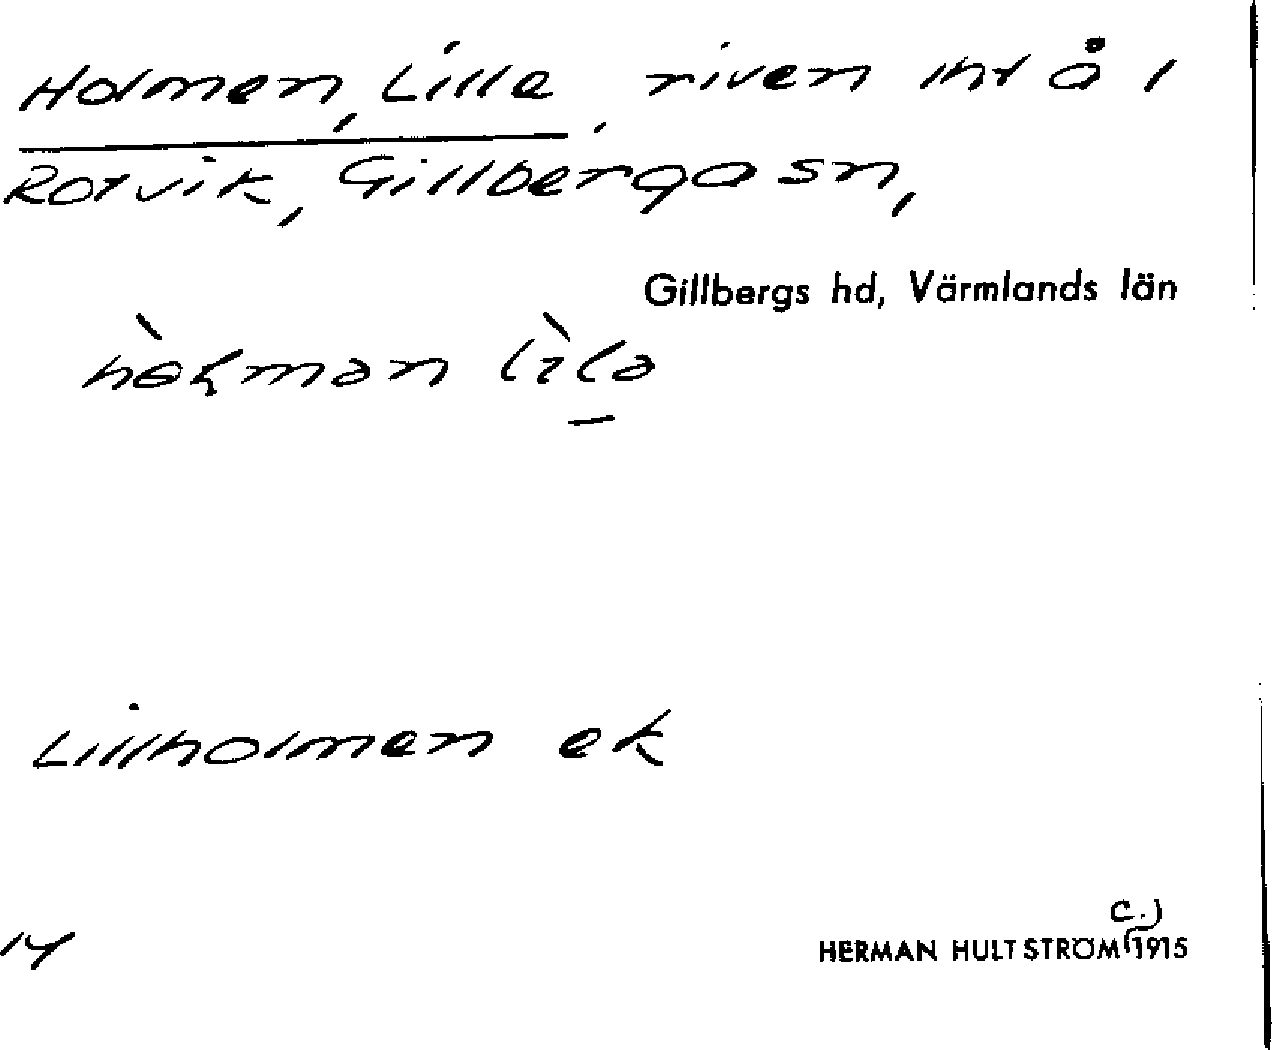 Holmen, Lilla, riven lht å 1
Rotvik, Gillberga sn,
Gillbergs hd, Värmlands län
lìla
Lillholmen ek
14
HERMAN HULTSTRÖM (c.) 1915